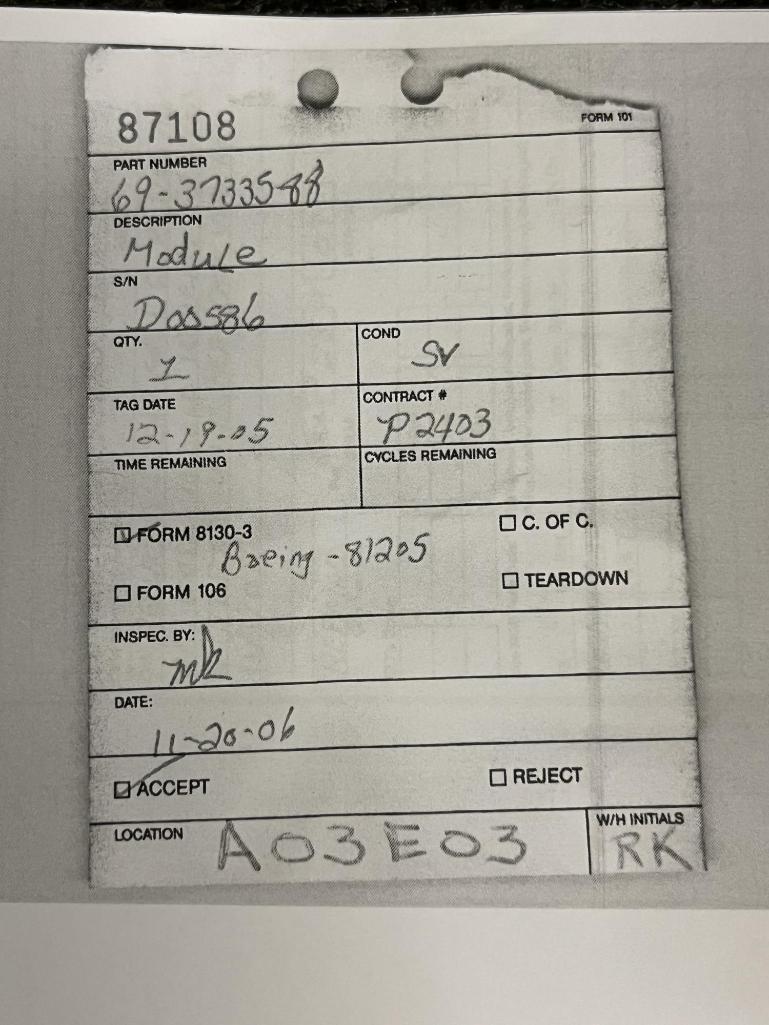 87108
FORM 101
PART NUMBER
69-37335-88
DESCRIPTION
Module
S/N
D00586
QTY.
1
COND
SV
TAG DATE
12-19-05
CONTRACT #
P2403
TIME REMAINING
CYCLES REMAINING
FORM 8130-3
C. OF C.
Boeing - 81205
FORM 106
TEARDOWN
INSPEC. BY:
mk
DATE:
11-20-06
ACCEPT
REJECT
LOCATION
A03E03
W/H INITIALS
RK